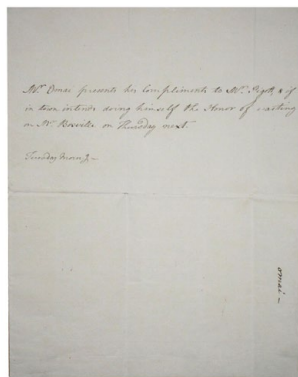 Mr. Omai presents his Compliments to Mr. Pigott & if
in town intends doing himself the Honor of waiting
on Mr. Bosville on Thursday next.
Tuesday Morng.—
omai —